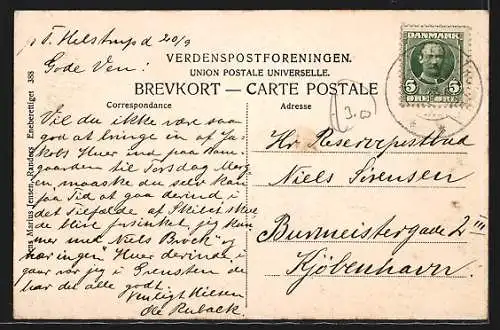 p. T. Helstrup d 20/9
Gode Ven!
VERDENSPOSTFORENINGEN.
UNION POSTALE UNIVERSELLE.
BREVKORT — CARTE POSTALE
DANMARK
5 5
Correspondance
Adresse
3.00
Vil du ikke være saa
god at bringe in af Ja-
kobs Huer ind paa Ban-
gaarden til Torsdag Morg-
en maaske du selv kan
faa Tid at gaa derind i
det Tilfælde af skul
de blive forsinket, jeg kom
mer med "Niels Brock" og
har ingen Huer derinde i
gaar var jeg i Grensten de
har du alle godt.
Venligst Hilsen
Ole Ruback.
Hr Reservepostbud
Niels Sørensen
Burmeistergade 2 III
Kjöbenhavn.
Jens Marius Jensen, Randers Eneberettiget 388